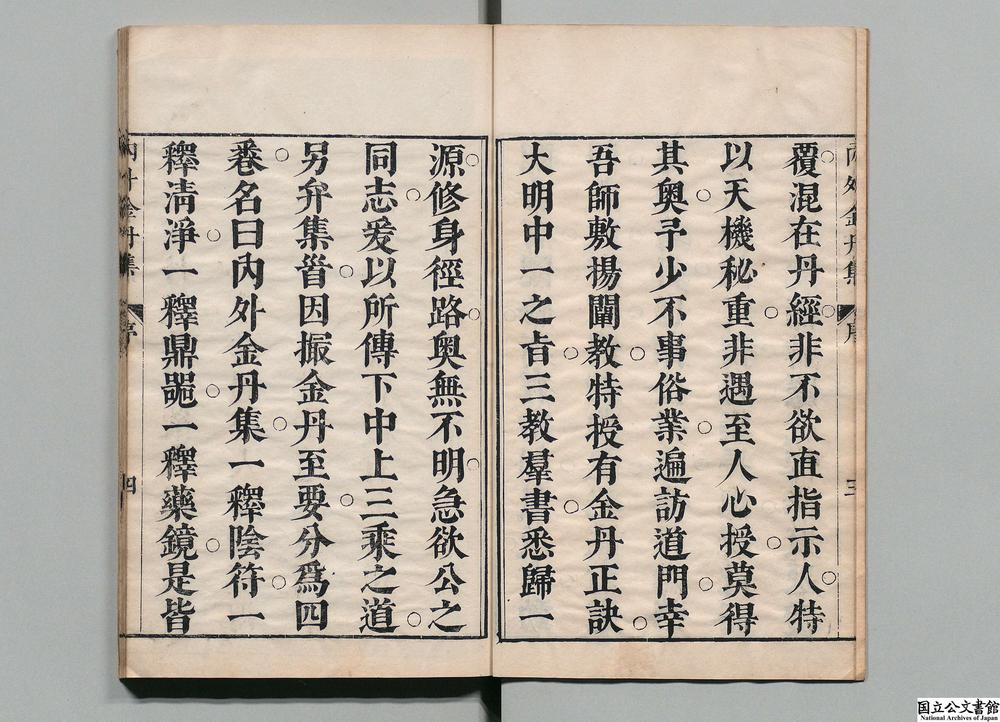 內外金丹集 序 三
覆混在丹經非不欲直指示人特
以天機秘重非遇至人心授莫得
其奧予少不事俗業遍訪道門幸
吾師敷揚闡教特授有金丹正訣
大明中一之旨三教羣書悉歸一
源修身徑路奧無不明急欲公之
同志爰以所傳下中上三乘之道
另弁集首因撮金丹至要分爲四
卷名曰內外金丹集一釋陰符一
釋清淨一釋鼎器一釋藥鏡是皆
內外金丹集 序 四
国立公文書館
National Archives of Japan